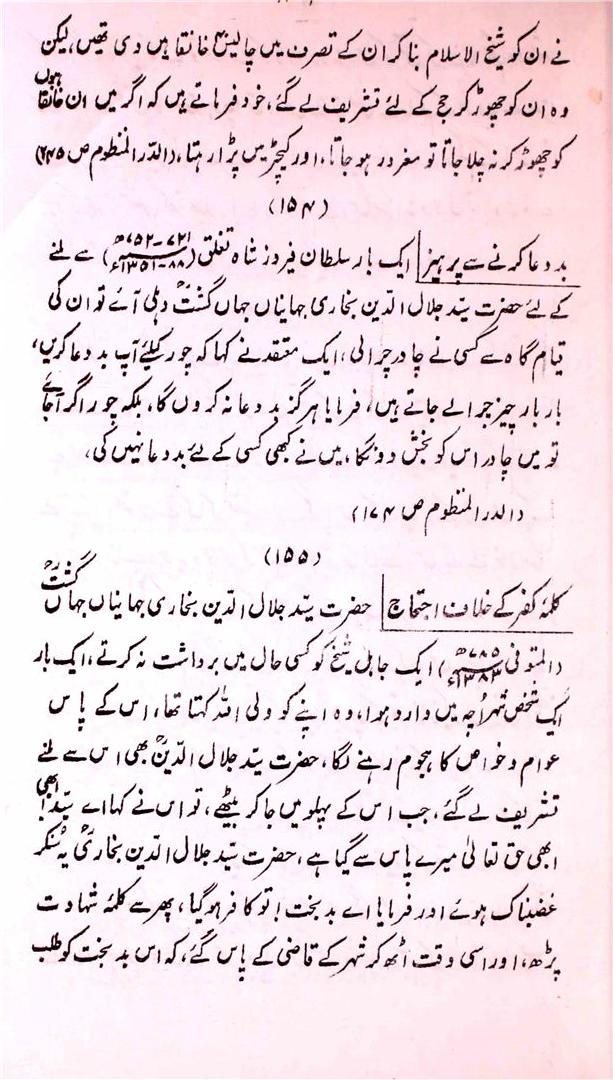 نے ان کو شیخ الاسلام بنا کر ان کے تصرف میں چالیس خانقاہیں دی تھیں، لیکن
وہ ان کو چھوڑ کر حج کے لئے تشریف لے گئے، خود فرماتے ہیں کہ اگر میں ان خانقاہوں
کو چھوڑ کر نہ چلا جاتا تو مغرور ہو جاتا، اور کیچڑ میں پڑا رہتا، (الدّر المنظوم ص ۲۴۵)
(۱۵۴)
بد دعا کرنے سے پرہیز ایک بار سلطان فیروز شاہ تغلق (۷۵۲-۷۲۱ھ ۱۳۵۱-۸۸ء) سے ملنے
کے لئے حضرت سیّد جلال الدّین بخاری جہانیاں جہاں گشتؒ دہلی آئے تو ان کی
قیام گاہ سے کسی نے چادر چرا لی، ایک معتقد نے کہا کہ چور کیلئے آپ بد دعا کریں،
بار بار چیز چرا لے جاتے ہیں، فرمایا ہرگز بد دعا نہ کروں گا، بلکہ چور اگر آجائے
تو میں چادر اس کو بخش دونگا، میں نے کبھی کسی کے لئے بد دعا نہیں کی،
(الدر المنظوم ص ۱۷۴)
(۱۵۵)
کلمۂ کفر کے خلاف احتجاج حضرت سیّد جلال الدّین بخاری جہانیاں جہاں گشتؒ
(المتوفی ۷۸۵ھ ۱۳۸۳ء) ایک جاہل شیخ کو کسی حال میں برداشت نہ کرتے، ایک بار
ایک شخص شہر اُچہ میں وارد ہوا، وہ اپنے کو ولی اللہ کہتا تھا، اس کے پاس
عوام و خواص کا ہجوم رہنے لگا، حضرت سیّد جلال الدّینؒ بھی اس سے ملنے
تشریف لے گئے، جب اس کے پہلو میں جا کر بیٹھے، تو اس نے کہا اے سیّد! ابھی
ابھی حق تعالیٰ میرے پاس سے گیا ہے، حضرت سیّد جلال الدّین بخاریؒ یہ سُنکر
غضبناک ہوئے اور فرمایا اے بد بخت! تو کافر ہو گیا، پھر سے کلمۂ شہادت
پڑھ، اور اسی وقت اٹھ کر شہر کے قاضی کے پاس گئے، کہ اس بد بخت کو طلب